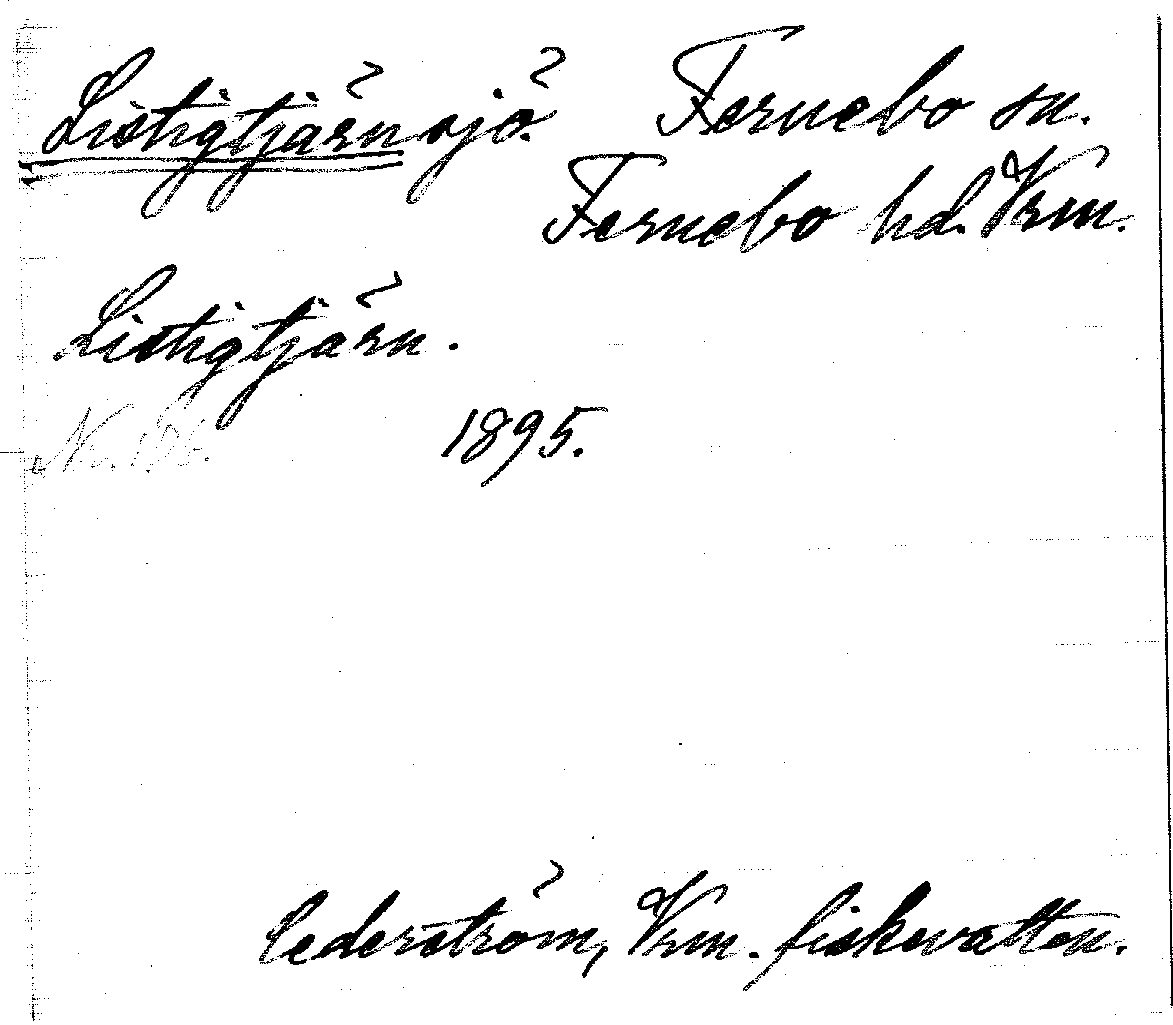 Listigtjärn sjö. Fernebo sn.
Fernebo hd. Vrm.
Listigtjärn.
No. 1895.
Cederström, Vrm. fiskevatten.